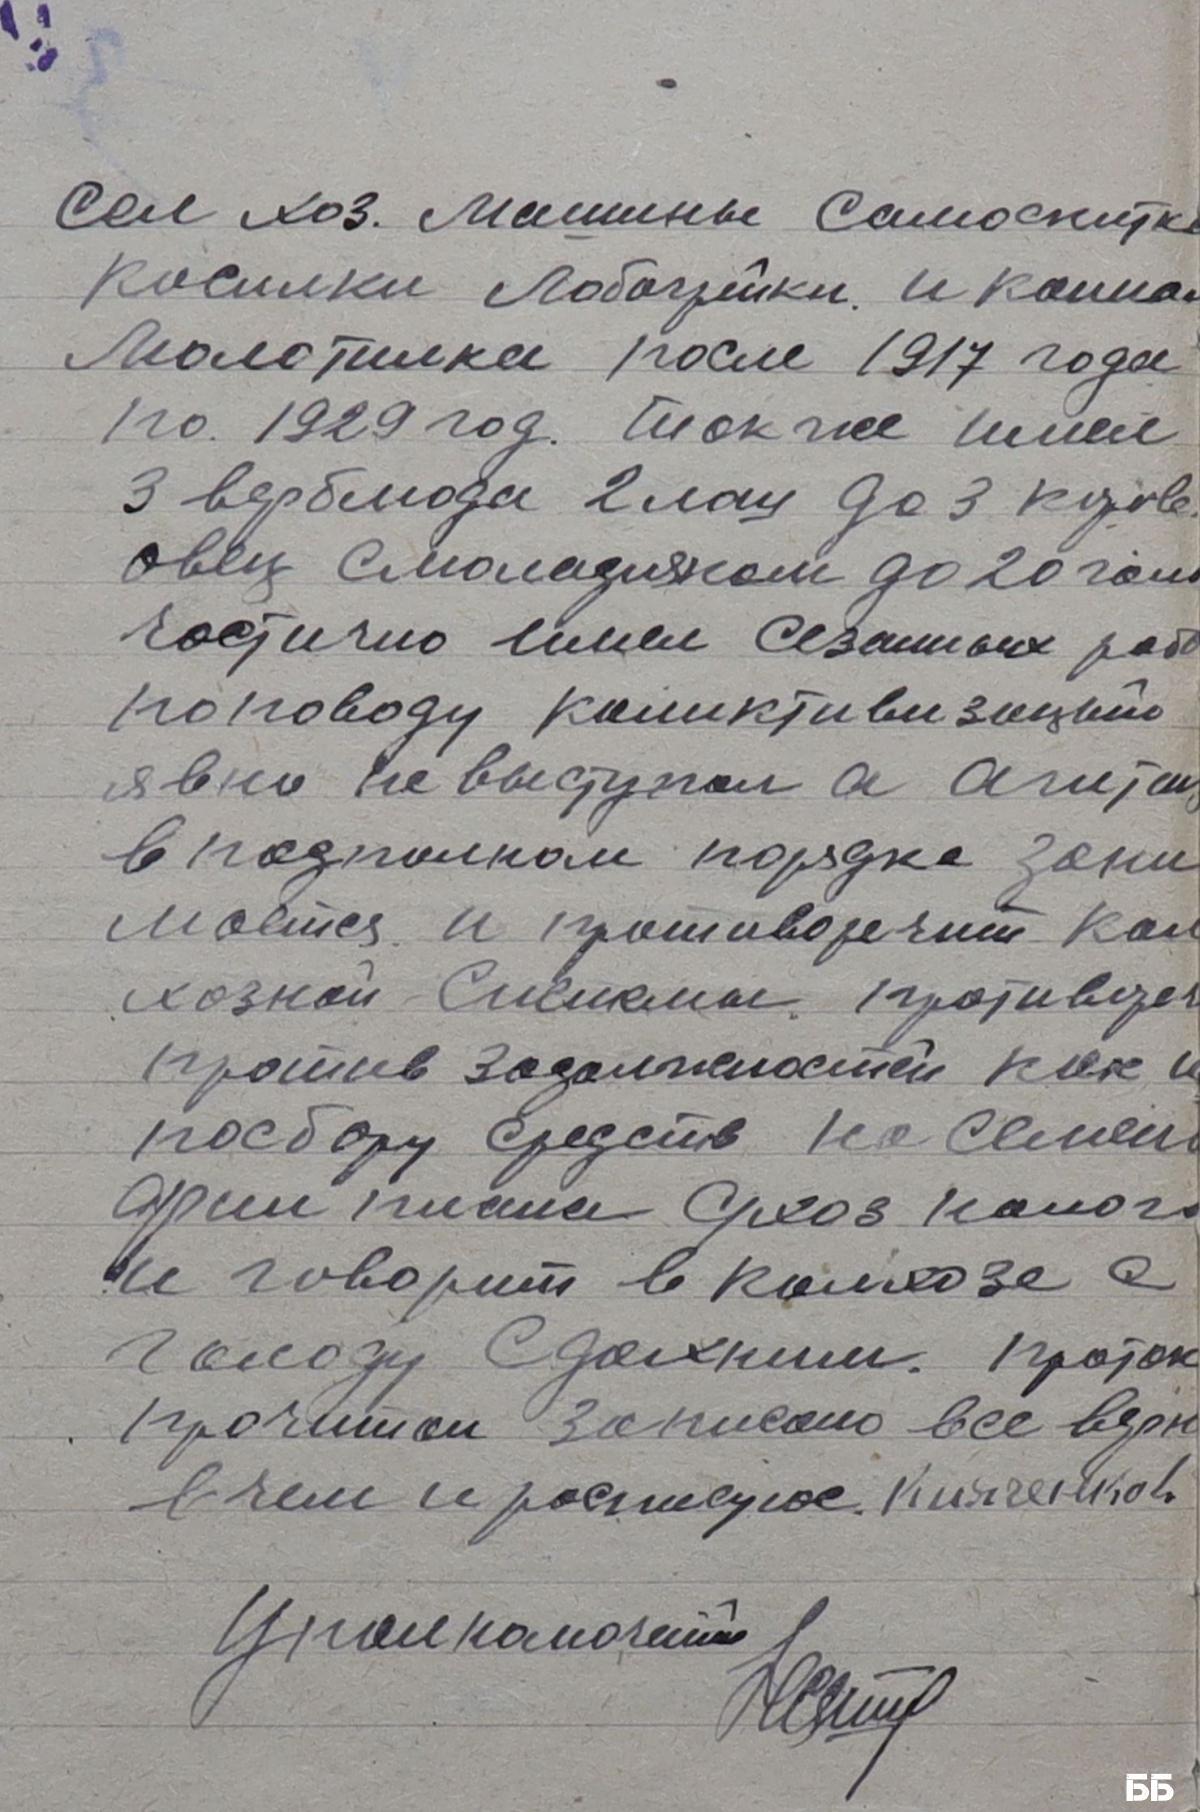 Сел хоз. Машины Самоскитк
Косилки Лобогрейки. и конная
Молотилка после 1917 года
по. 1929 год. также имел
3 верблюда 2 лош до 3 коров.
овец Смоладняком до 20 голо
частично имел Сезанных рабо
поповоду коликтивизацыю
явно не выступал а агитац
в подполном порядке зани
мается. и противоречит кол
хозной Сисиемы. противореч
против задолжностей как и
посбору средств на Семен
фин плана Срхоз налога
и говорит в колхозе с
голоду Сдохним. проток
прочитан записано все верн
в чем и роспишусе.
Уполномочений
ББ